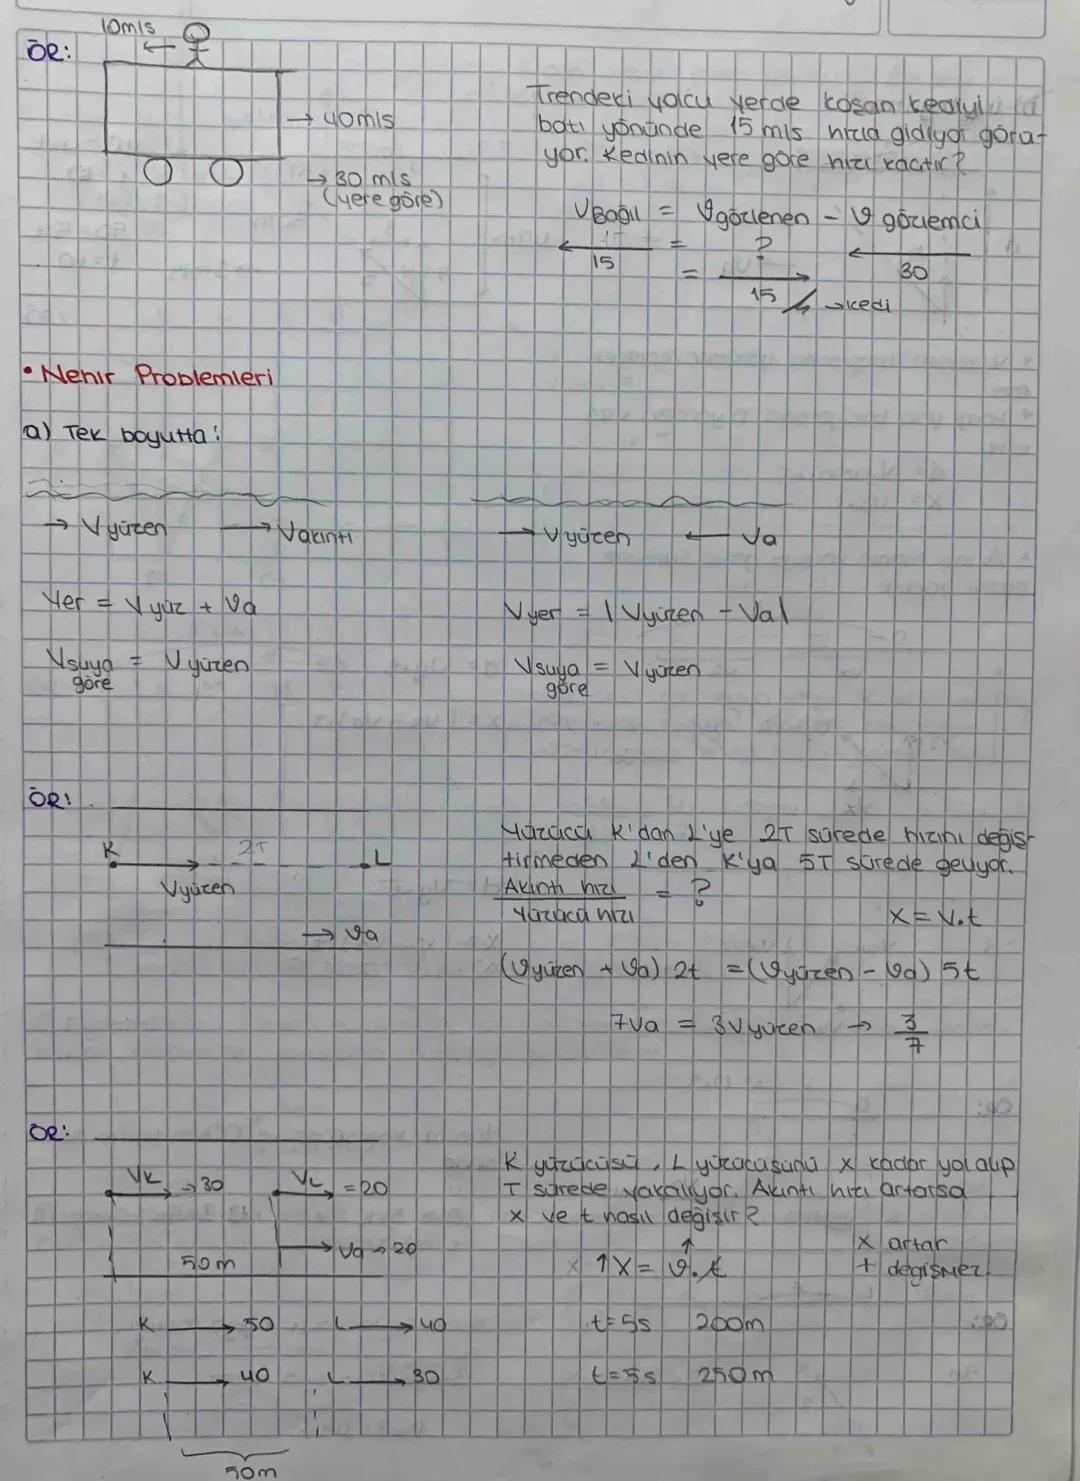 10m/s
ÖR:
→ 40m/s
→ 30 m/s
(yere göre)
Trendeki yolcu yerde koşan kediyi
batı yönünde 15 m/s hızla gidiyor görü-
yor. Kedinin yere göre hızı kaçtır?
VBağıl = ϑgözlenen - ϑ gözlemci
15 = ? 30
= 15 → kedi
• Nehir Problemleri
a) Tek boyutta:
→ Vyüzen → Vakıntı
→ Vyüzen ← Va
Yer = Vyüz + ϑa
Vyer = |Vyüzen - Va|
Vsuya = Vyüzen
göre
Vsuya = Vyüzen
göre
ÖR:
K 2T L
Vyüzen
→ ϑa
Yüzücü K'dan L'ye 2T sürede hızını değiş-
tirmeden L'den K'ya 5T sürede geliyor.
Akıntı hızı = ?
Yüzücü hızı
X = V.t
(ϑyüzen + ϑa) 2t = (ϑyüzen - ϑa) 5t
7Va = 3Vyüzen → 3
7
ÖR:
VK → 30 VL = 20
→ Va → 20
50m
K yüzücüsü, L yüzücüsünü x kadar yol alıp
T sürede yakalıyor. Akıntı hızı artarsa
x ve t nasıl değişir?
x ↑X = ϑ.t
X artar
t değişmez
K → 50 L → 40 t=5s 200m
K → 40 L → 30 t=5s 250m
50m